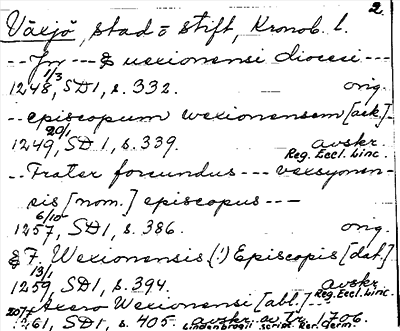 2.
Växjö, stad o stift, Kronob. l.
-- In --- & uexionensi diocesi ---
1/3
1248, SD1, s. 332. orig.
-- episcopum wexionensem [ack.] -
20/1
1249, SD 1, s. 339. avskr.
Reg. Eccl. Linc.
-- Frater forcundus --- vexsyonen-
sis [nom.] episcopus ---
6/10
1257, SD1, s. 386. orig.
& F. Wexionensis (!) Episcopis [dat.]
13/1
1259, SD1, s. 394. avskr.
Reg. Eccl. Linc.
Azero Wexionensi [abl.] ---
20/7
1261, SD1, s. 405. avskr. av tr. 1706.
Lindenbrogii script. Rer. Germ.